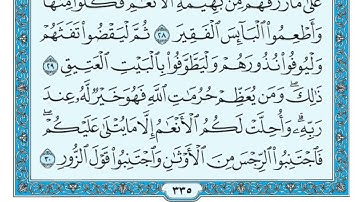 عَلَىٰ مَا رَزَقَهُم مِّنۢ بَهِيمَةِ ٱلْأَنْعَٰمِ فَكُلُوا۟ مِنْهَا
وَأَطْعِمُوا۟ ٱلْبَآئِسَ ٱلْفَقِيرَ ٢٨ ثُمَّ لْيَقْضُوا۟ تَفَثَهُمْ
وَلْيُوفُوا۟ نُذُورَهُمْ وَلْيَطَّوَّفُوا۟ بِٱلْبَيْتِ ٱلْعَتِيقِ ٢٩
ذَٰلِكَۖ وَمَن يُعَظِّمْ حُرُمَٰتِ ٱللَّهِ فَهُوَ خَيْرٌ لَّهُۥ عِندَ
رَبِّهِۦۗ وَأُحِلَّتْ لَكُمُ ٱلْأَنْعَٰمُ إِلَّا مَا يُتْلَىٰ عَلَيْكُمْۖ
فَٱجْتَنِبُوا۟ ٱلرِّجْسَ مِنَ ٱلْأَوْثَٰنِ وَٱجْتَنِبُوا۟ قَوْلَ ٱلزُّورِ ٣٠
٣٣٥